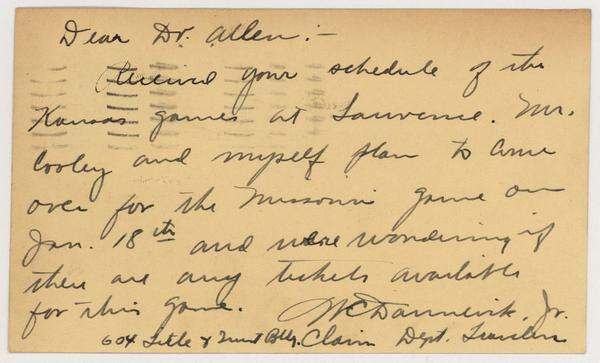 Dear Dr. Allen:-
Received your schedule of the
Kansas games at Lawrence. Mr.
Cooley and myself plan to come
over for the Missouri game on
Jan. 18th and were wondering if
there are any tickets available
for this game. Jr.
604 Title & Trust Bldg. Claim Dept. Travelers